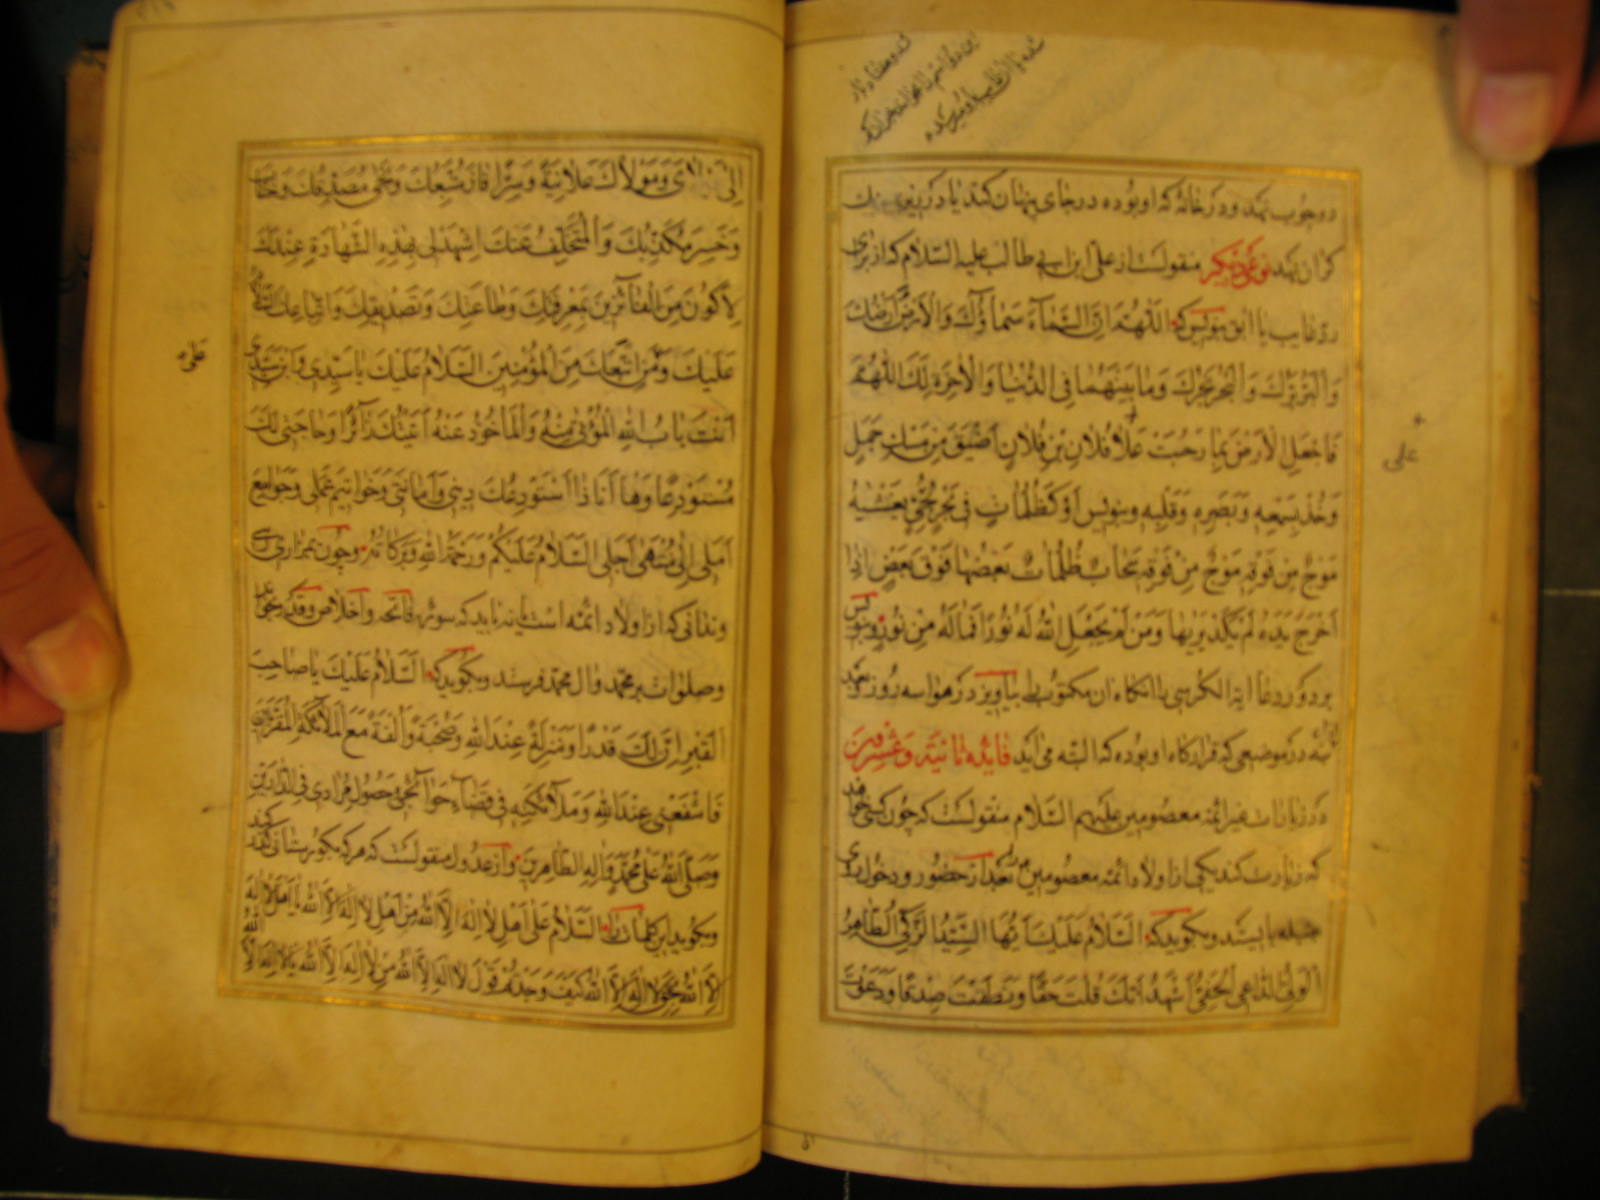 شده بالای
دو چوب نهد و در خانه که او بوده در جای پنهان کند یا در زیر سنك
کران نهد نوعدیکر منقولست از علی ابن ابی طالب علیه السلام که از برای
رد غایب یا ابق بنویس که اللهم ان السماء سماؤك والارض ارضك
والبر برك والبحر بحرك وما بینهما فی الدنیا والاخرة لك اللهم
فاجعل الارض بما رحبت علی فلان بن فلان اضیق من مسك جمل
وخذ بسمعه وبصره وقلبه وبنویس او کظلمات فی بحر لجی یغشیه
موج من فوقه موج من فوقه سحاب ظلمات بعضها فوق بعض اذا
اخرج یده لم یکد یریها ومن لم یجعل الله له نورا فما له من نور وبنویس
بر دور دعا ایة الکرسی با انکاه ان مکتوب را بیاویزد در هوا سه روز بعد
بنه در موضعی که قرارکاه او بوده که البته می اید فایده ثانیة وعشرین
در زیارات غیر ائمه معصومین علیهم السلام منقولست که چون کسی خواهد
که زیارت کند یکی از اولاد ائمه معصومین را بعد از حضور و دخول
بایستد وبکوید که السلام علیك ایها السید الزکی الطاهر
الولی الداعی الحفی اشهد انك قلت حقا ونطقت صدقا ودعوت
علی
الی مولای ومولاك علانیة وسرا فاز متبعك ونجی مصدقك وخاب
وخسر مکذبك والمتخلف عنك اشهد لی بهذه الشهادة عندك
لاکون من الفائزین بمعرفتك وطاعتك وتصدیقك واتباعك السلام
علیك وعلی من اتبعك من المؤمنین السلام علیك یا سیدی وابن سیدی
انت باب الله المؤتی منه والماخوذ عنه اتیتك زائرا وحاجتی لك
مستودعا وها انا ذا استودعك دینی وامانتی وخواتیم عملی وجوامع
املی الی منتهی اجلی السلام علیکم ورحمة الله وبرکاته وچون بمزاری رسی
وندانی که از اولاد ائمه است یا نه باید که سوره فاتحه واخلاص وقدر بخوانی
وصلوات بر محمد وال محمد فرستد وبکوید که السلام علیك یا صاحب
القبر ان لك قدرا ومنزلة عند الله وصحبة والفة مع الملائکة المقربین
فاشفعنی عند الله وملائکته فی قضاء حوائجی وحصول مرادی فی الدارین
وصلی الله علی محمد واله الطاهرین واز عدول منقولست که هر که بکورستانی کذر کند
وبکوید این کلمات را السلام علی اهل لا اله الا الله من اهل لا اله الا الله یا اهل لا اله الا الله
بحق لا اله الا الله کیف وجدتم قول لا اله الا الله من لا اله الا الله یا لا اله الا
علی